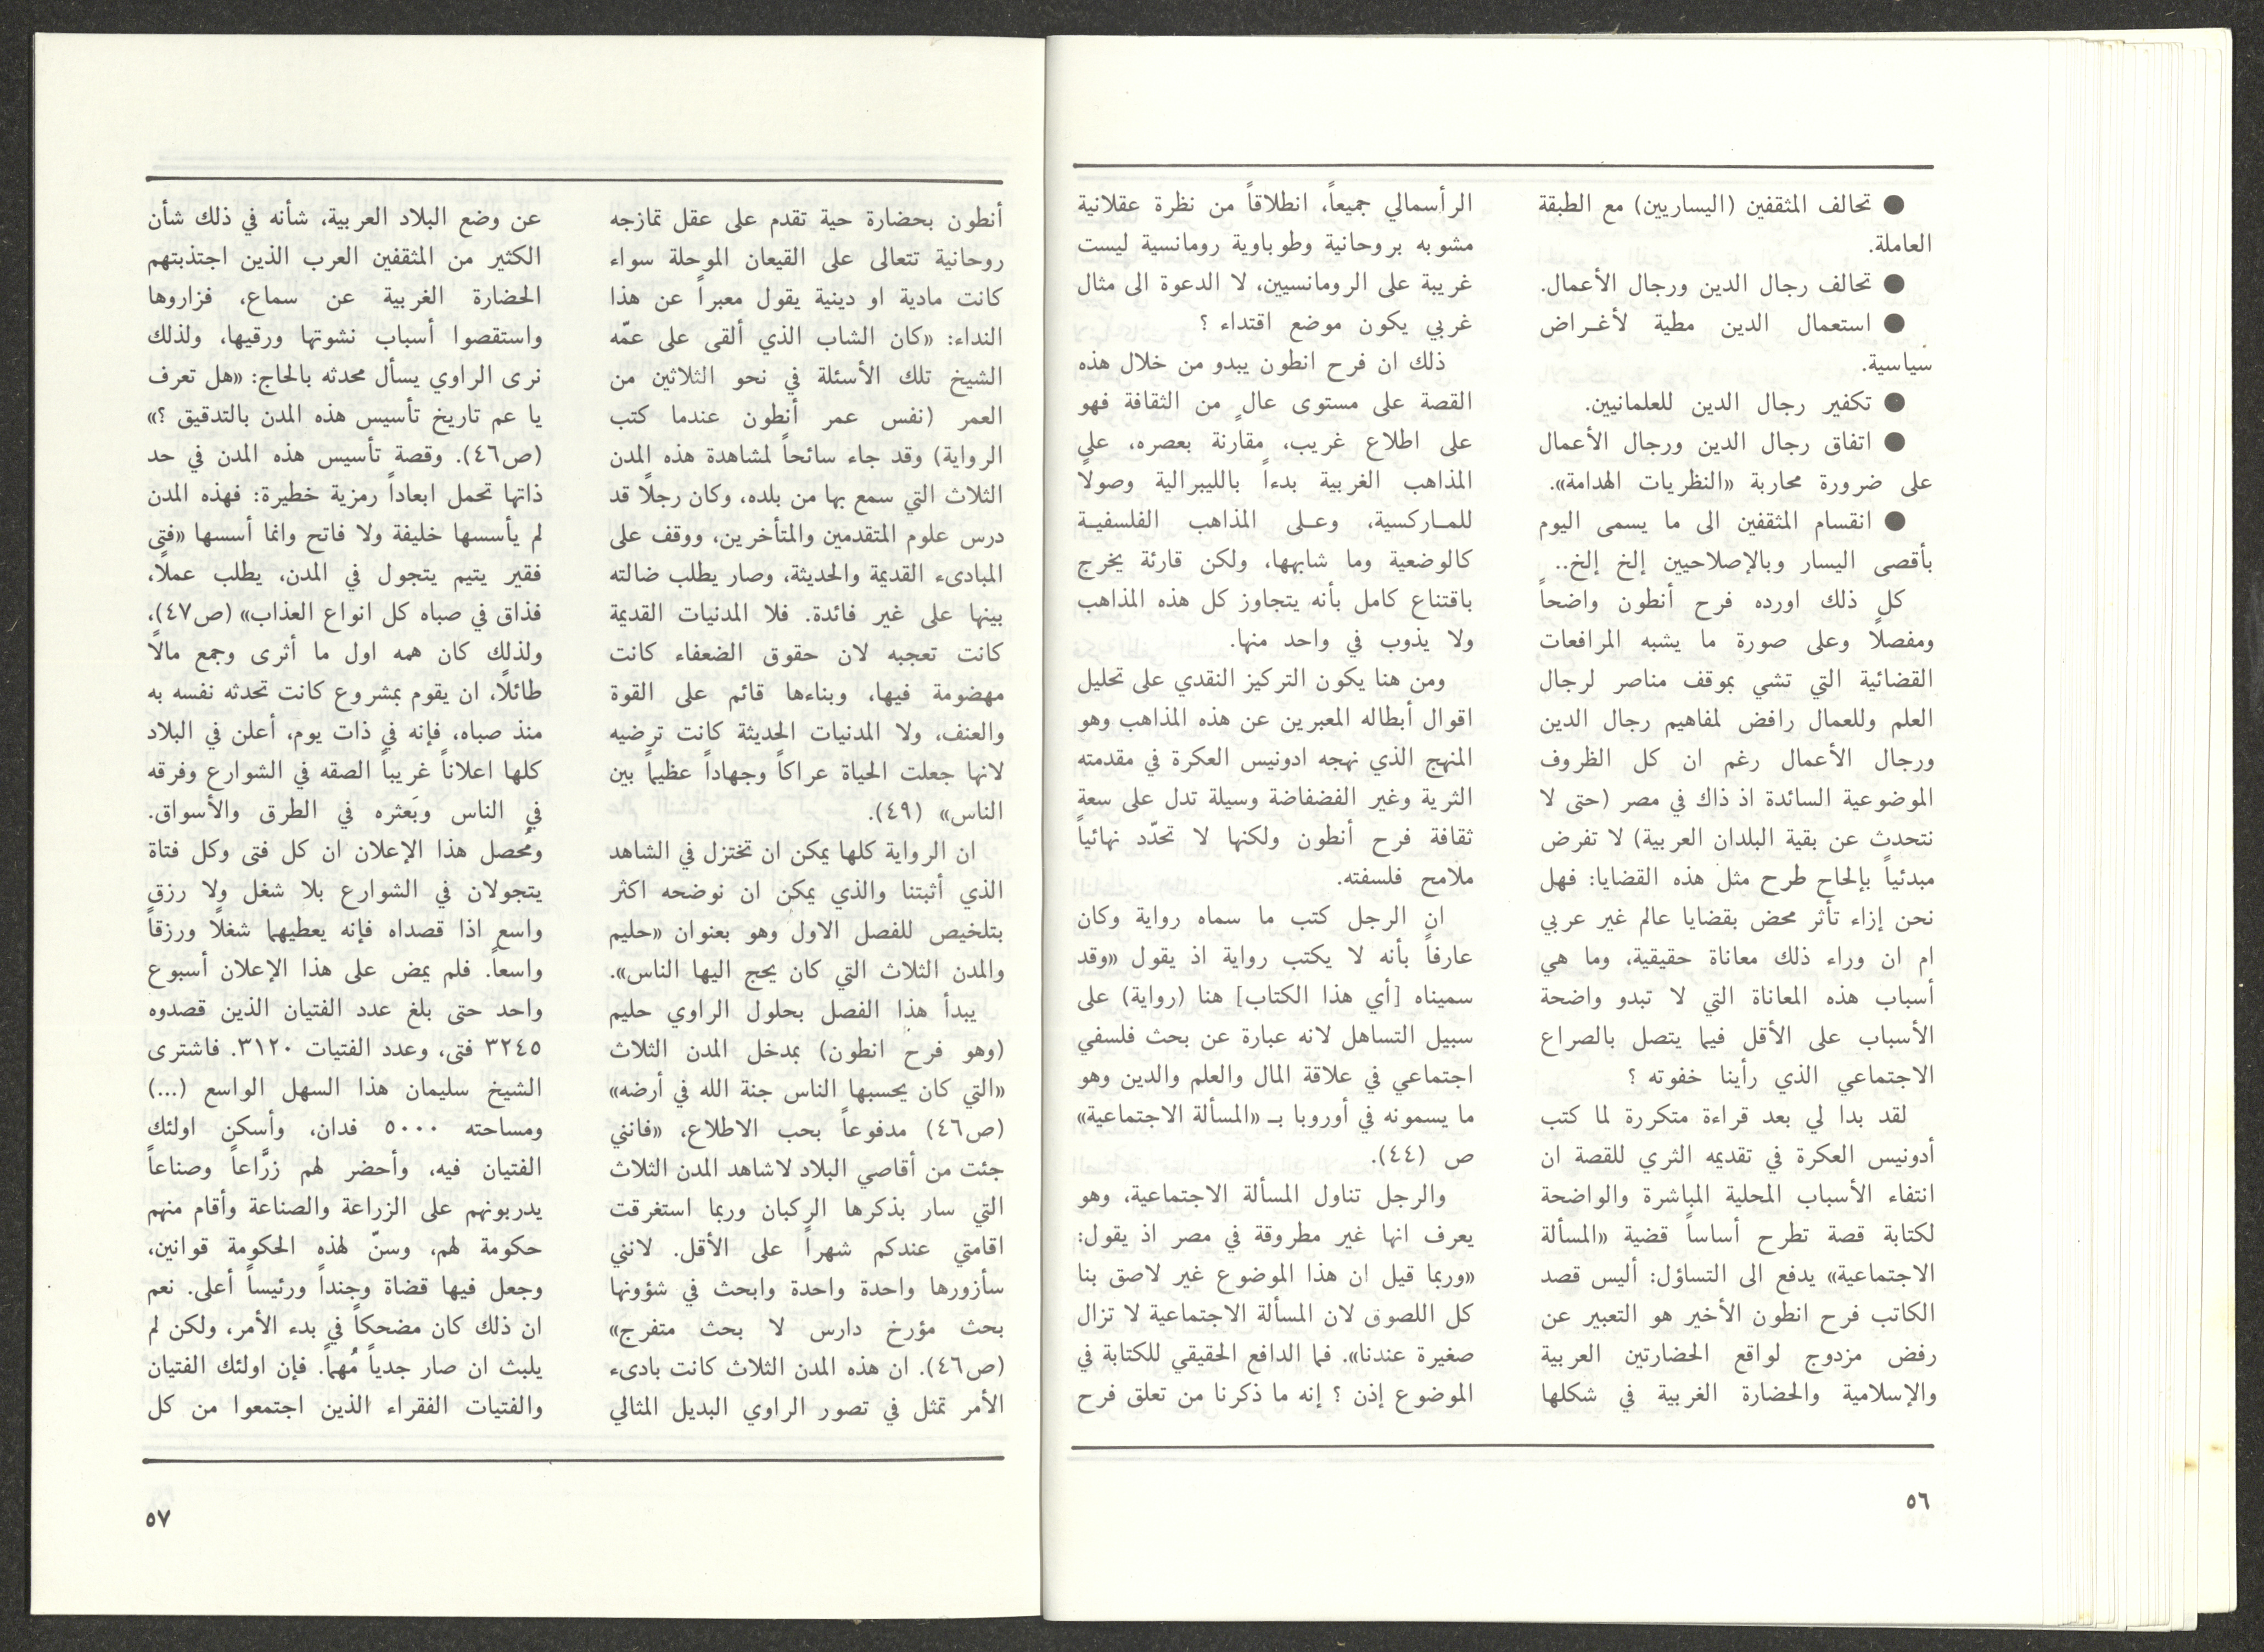 ● تحالف المثقفين (اليساريين) مع الطبقة
العاملة.
● تحالف رجال الدين ورجال الأعمال.
● استعمال الدين مطية لأغـراض
سياسية.
● تكفير رجال الدين للعلمانيين.
● اتفاق رجال الدين ورجال الأعمال
على ضرورة محاربة «النظريات الهدامة».
● انقسام المثقفين الى ما يسمى اليوم
بأقصى اليسار وبالإصلاحيين إلخ إلخ..
كل ذلك اورده فرح أنطون واضحاً
ومفصلاً وعلى صورة ما يشبه المرافعات
القضائية التي تشي بموقف مناصر لرجال
العلم وللعمال رافض لمفاهيم رجال الدين
ورجال الأعمال رغم ان كل الظروف
الموضوعية السائدة اذ ذاك في مصر (حتى لا
نتحدث عن بقية البلدان العربية) لا تفرض
مبدئياً بإلحاح طرح مثل هذه القضايا: فهل
نحن إزاء تأثر محض بقضايا عالم غير عربي
ام ان وراء ذلك معاناة حقيقية، وما هي
أسباب هذه المعاناة التي لا تبدو واضحة
الأسباب على الأقل فيما يتصل بالصراع
الاجتماعي الذي رأينا خفوته ؟
لقد بدا لي بعد قراءة متكررة لما كتب
أدونيس العكرة في تقديمه الثري للقصة ان
انتفاء الأسباب المحلية المباشرة والواضحة
لكتابة قصة تطرح أساساً قضية «المسألة
الاجتماعية» يدفع الى التساؤل: أليس قصد
الكاتب فرح انطون الأخير هو التعبير عن
رفض مزدوج لواقع الحضارتين العربية
والإسلامية والحضارة الغربية في شكلها
الرأسمالي جميعاً، انطلاقاً من نظرة عقلانية
مشوبه بروحانية وطوباوية رومانسية ليست
غريبة على الرومانسيين، لا الدعوة الى مثال
غربي يكون موضع اقتداء ؟
ذلك ان فرح انطون يبدو من خلال هذه
القصة على مستوى عالٍ من الثقافة فهو
على اطلاع غريب، مقارنة بعصره، على
المذاهب الغربية بدءاً بالليبرالية وصولاً
للمـاركسية، وعـلى المذاهب الفلسفيـة
كالوضعية وما شابهها، ولكن قارئة يخرج
باقتناع كامل بأنه يتجاوز كل هذه المذاهب
ولا يذوب في واحد منها.
ومن هنا يكون التركيز النقدي على تحليل
اقوال أبطاله المعبرين عن هذه المذاهب وهو
المنهج الذي نهجه ادونيس العكرة في مقدمته
الثرية وغير الفضفاضة وسيلة تدل على سعة
ثقافة فرح أنطون ولكنها لا تحدّد نهائياً
ملامح فلسفته.
ان الرجل كتب ما سماه رواية وكان
عارفاً بأنه لا يكتب رواية اذ يقول «وقد
سميناه [أي هذا الكتاب] هنا (رواية) على
سبيل التساهل لانه عبارة عن بحث فلسفي
اجتماعي في علاقة المال والعلم والدين وهو
ما يسمونه في أوروبا بـ «المسألة الاجتماعية»
ص (٤٤).
والرجل تناول المسألة الاجتماعية، وهو
يعرف انها غير مطروقة في مصر اذ يقول:
«وربما قيل ان هذا الموضوع غير لاصق بنا
كل اللصوق لان المسألة الاجتماعية لا تزال
صغيرة عندنا». فما الدافع الحقيقي للكتابة في
الموضوع إذن ؟ إنه ما ذكرنا من تعلق فرح
٥٦
أنطون بحضارة حية تقدم على عقل تمازجه
روحانية تتعالى على القيعان الموحلة سواء
كانت مادية او دينية يقول معبراً عن هذا
النداء: «كان الشاب الذي ألقى على عمّه
الشيخ تلك الأسئلة في نحو الثلاثين من
العمر (نفس عمر أنطون عندما كتب
الرواية) وقد جاء سائحاً لمشاهدة هذه المدن
الثلاث التي سمع بها من بلده، وكان رجلاً قد
درس علوم المتقدمين والمتأخرين، ووقف على
المبادىء القديمة والحديثة، وصار يطلب ضالته
بينها على غير فائدة. فلا المدنيات القديمة
كانت تعجبه لان حقوق الضعفاء كانت
مهضومة فيها، وبناءها قائم على القوة
والعنف، ولا المدنيات الحديثة كانت ترضيه
لانها جعلت الحياة عراكاً وجهاداً عظيماً بين
الناس» (٤٩).
ان الرواية كلها يمكن ان تختزل في الشاهد
الذي أثبتنا والذي يمكن ان نوضحه اكثر
بتلخيص للفصل الاول وهو بعنوان «حليم
والمدن الثلاث التي كان يحج اليها الناس».
يبدأ هذا الفصل بحلول الراوي حليم
(وهو فرح انطون) بمدخل المدن الثلاث
«التي كان يحسبها الناس جنة الله في أرضه»
(ص٤٦) مدفوعاً بحب الاطلاع، «فانني
جئت من أقاصي البلاد لاشاهد المدن الثلاث
التي سار بذكرها الركبان وربما استغرقت
اقامتي عندكم شهراً على الأقل. لانني
سأزورها واحدة واحدة وابحث في شؤونها
بحث مؤرخ دارس لا بحث متفرج»
(ص٤٦). ان هذه المدن الثلاث كانت بادىء
الأمر تمثل في تصور الراوي البديل المثالي
عن وضع البلاد العربية، شأنه في ذلك شأن
الكثير من المثقفين العرب الذين اجتذبتهم
الحضارة الغربية عن سماع، فزاروها
واستقصوا أسباب نشوتها ورقيها، ولذلك
نرى الراوي يسأل محدثه بالحاج: «هل تعرف
يا عم تاريخ تأسيس هذه المدن بالتدقيق ؟»
(ص٤٦). وقصة تأسيس هذه المدن في حد
ذاتها تحمل ابعاداً رمزية خطيرة: فهذه المدن
لم يأسسها خليفة ولا فاتح وانما أسسها «فتى
فقير يتيم يتجول في المدن، يطلب عملاً،
فذاق في صباه كل انواع العذاب» (ص٤٧)،
ولذلك كان همه اول ما أثرى وجمع مالاً
طائلاً، ان يقوم بمشروع كانت تحدثه نفسه به
منذ صباه، فإنه في ذات يوم، أعلن في البلاد
كلها اعلاناً غريباً الصقه في الشوارع وفرقه
في الناس وبَعثره في الطرق والأسواق.
ومُحصل هذا الإعلان ان كل فتى وكل فتاة
يتجولان في الشوارع بلا شغل ولا رزق
واسع اذا قصداه فإنه يعطيهما شغلاً ورزقاً
واسعاً. فلم يمض على هذا الإعلان أسبوع
واحد حتى بلغ عدد الفتيان الذين قصدوه
٣٢٤٥ فتى، وعدد الفتيات ٣١٢٠. فاشترى
الشيخ سليمان هذا السهل الواسع (...)
ومساحته ٥٠٠٠ فدان، وأسكن اولئك
الفتيان فيه، وأحضر لهم زرَّاعاً وصناعاً
يدربونهم على الزراعة والصناعة وأقام منهم
حكومة لهم، وسنّ لهذه الحكومة قوانين،
وجعل فيها قضاة وجنداً ورئيساً أعلى. نعم
ان ذلك كان مضحكاً في بدء الأمر، ولكن لم
يلبث ان صار جدياً مُهماً. فإن اولئك الفتيان
والفتيات الفقراء الذين اجتمعوا من كل
٥٧